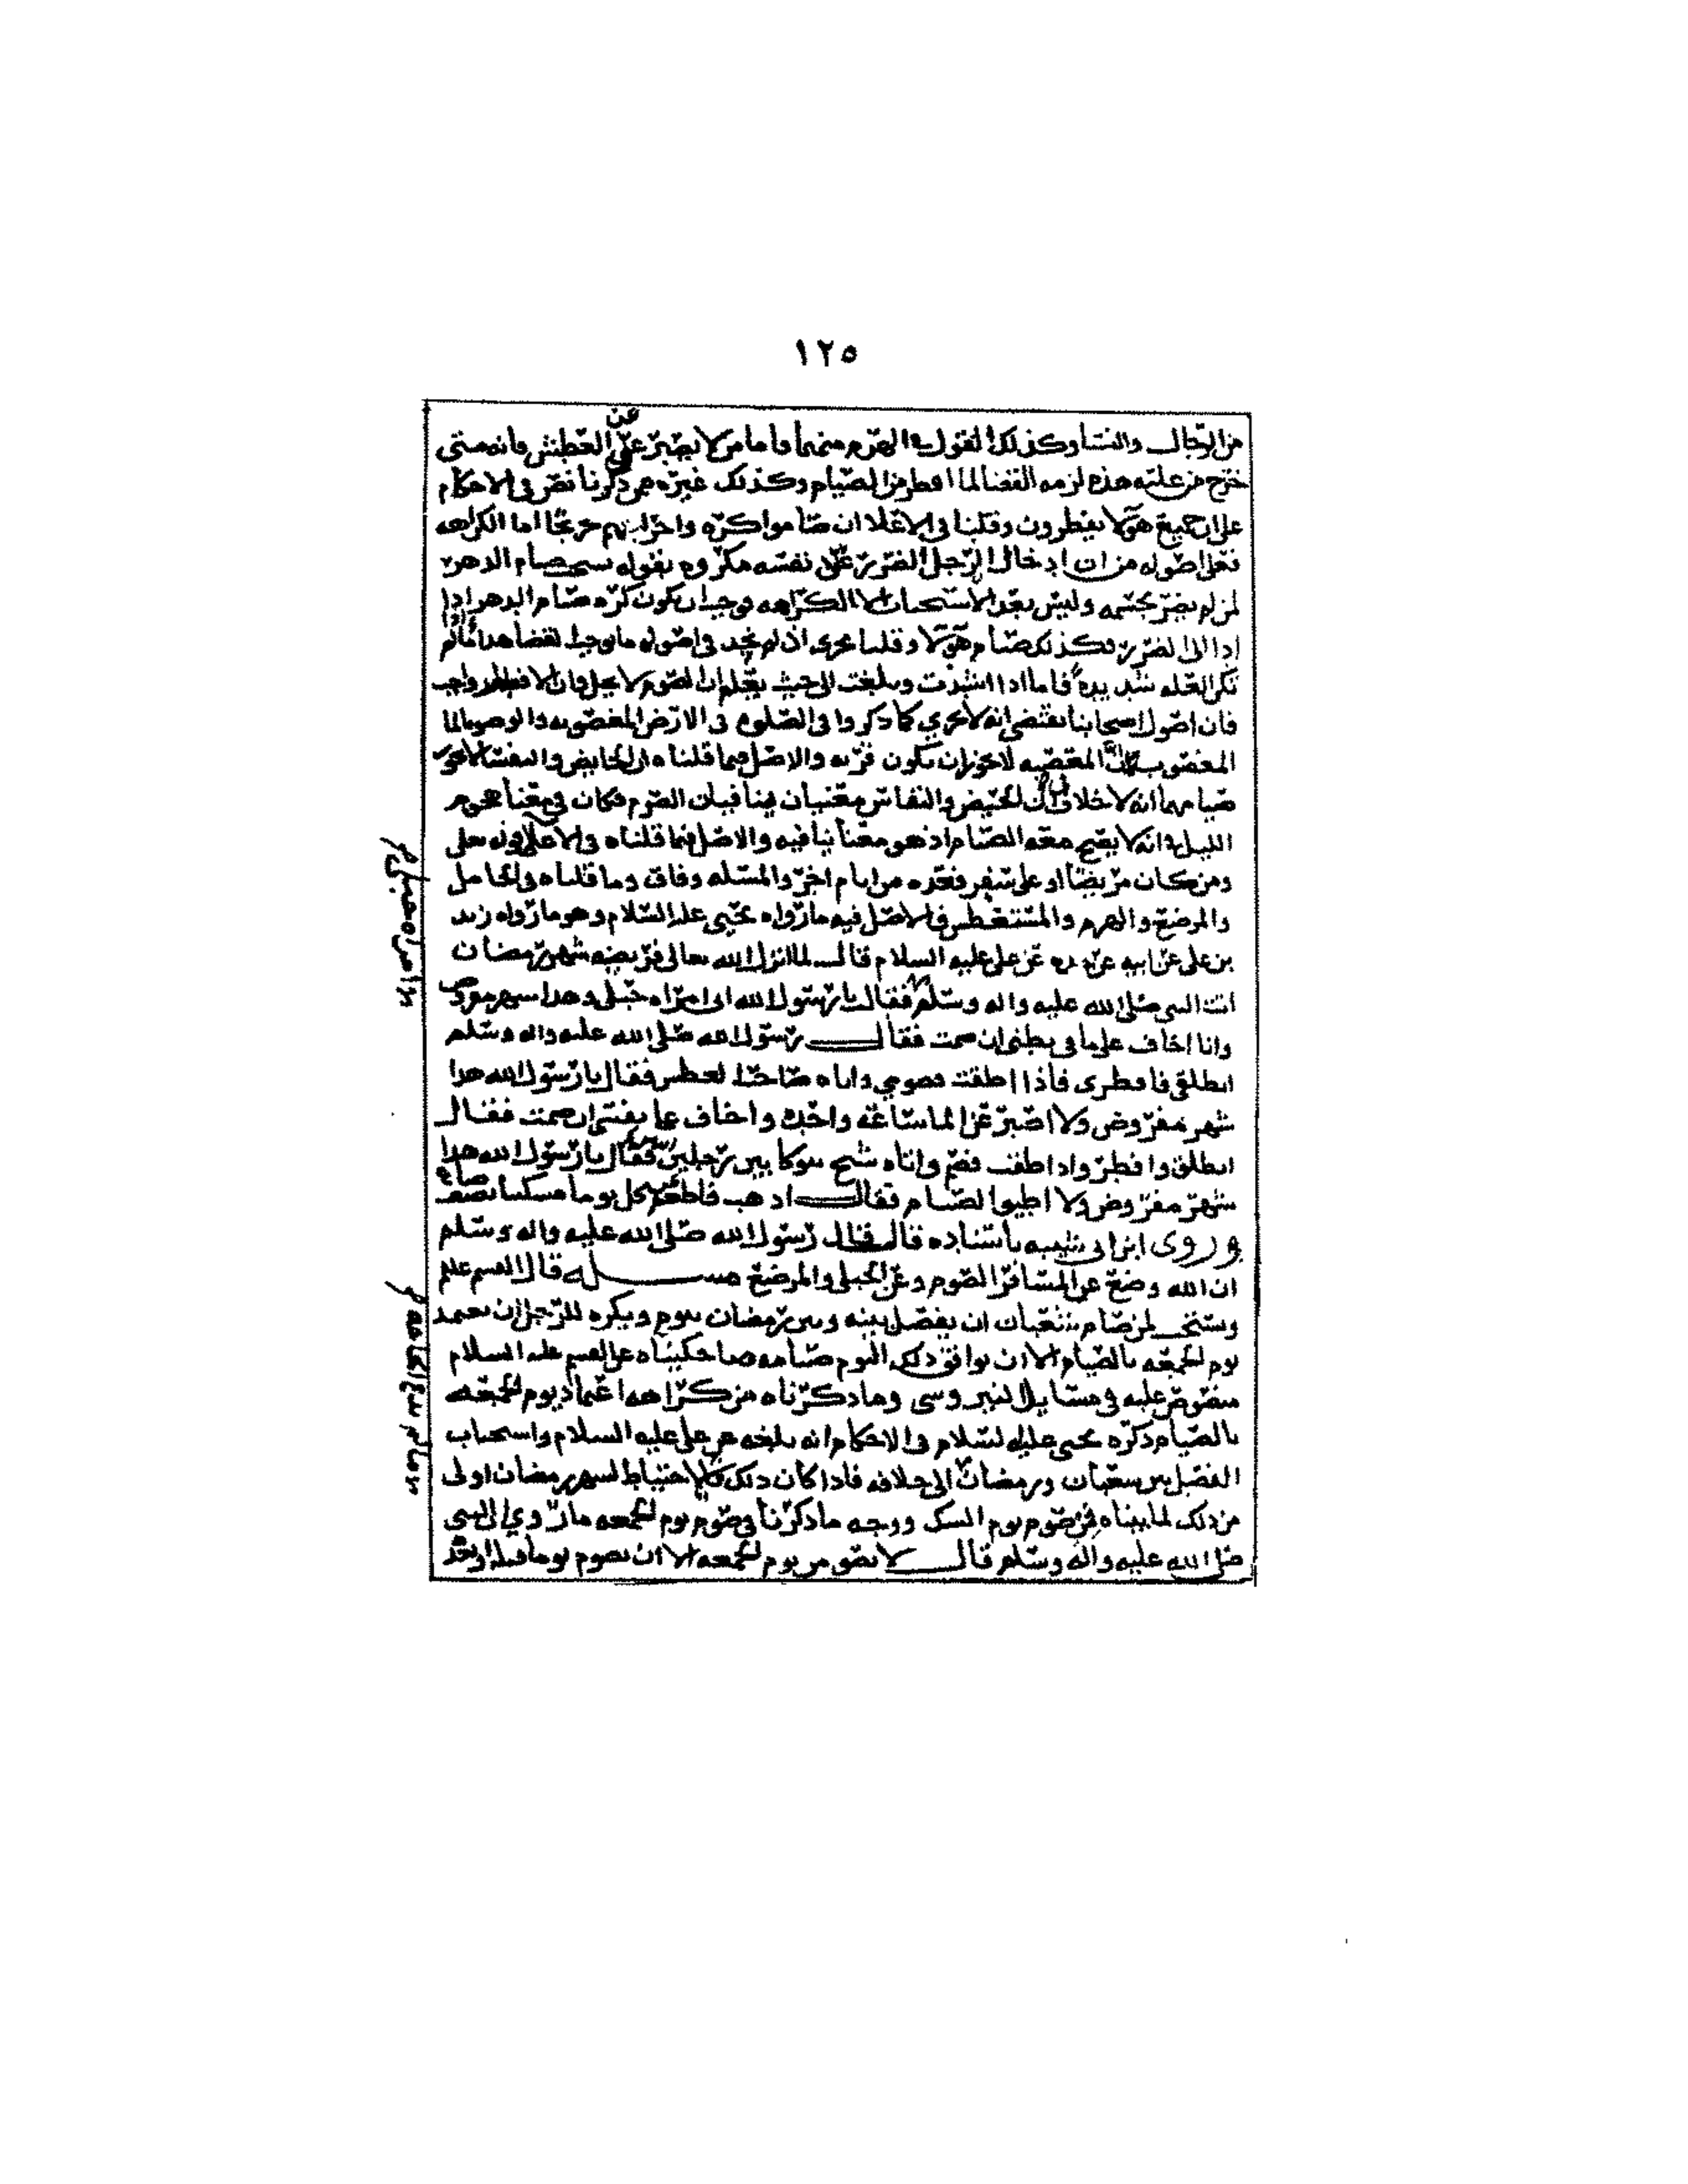 ١٢٥
من الرجال والنسا وكذلك القول في الهرم منهما فاما من لا يصبر على عن العطش فانه متى
خرج من علته هذه لزمه القضا لما افطر من الصيام وكذلك غيره ممن ذكرنا نص في الاحكام
على ان جميع هولا يفطرون وقلنا في الاعلا ان صاموا كره واجزا بهم تخريجا اما الكراهه
فعلى اصوله من ان ادخال الرجل الضرر على نفسه مكروه بقوله يستحب صيام الدهر
لمن لم يضر بجسمه وليس بعد الاستحباب الا الكراهه فوجب ان يكون كره صيام الدهر اذا
ادا الى الضرر فكذلك صيام هولا وقلنا يجزي اذ لم نجد في اصوله ما يوجب القضا هذا اذا لم
تكن العله شديده فاما اذا اشتدت وبلغت الى حيث يعلم ان الصوم لا يحل وان الافطار واجب
فان اصول اصحابنا تقتضي انه لا يجزي كما ذكروا في الصلوه في الارض المغصوبه والوضو بالما
المغصوب لان المعصيه لا يجوز ان تكون قربه والاصل فيما قلناه ان الحايض والنفسا لا يجزي
صيامهما انه لا خلاف في ان الحيض والنفاس معنيان ينافيان الصوم فكان في معناهم
الليل في انه لا يصح معه الصيام اذ هو معنا ينافيه والاصل فيما قلناه في الاعلا قوله تعالى
ومن كان مريضا او على سفر فعده من ايام اخر والمسله وفاق وما قلناه في الحامل
والمرضع والهرم والمستعطش فالاصل فيه ما رواه يحيى عليه السلام وهو ما رواه زيد
بن علي عن ابيه عن جده عن علي عليه السلام قال لما انزل الله تعالى فريضه شهر رمضان
اتت النبي صلى الله عليه واله وسلم فقالت يا رسول الله اني امراه حبلى وهذا شهر مفروض
وانا اخاف على ما في بطني ان صمت فقال رسول الله صلى الله عليه واله وسلم
انطلقي فافطري فاذا اطقت فصومي واتاه صاحب العطش فقال يا رسول الله هذا
شهر مفروض ولا اصبر عن الما ساعه واحده واخاف على نفسي ان صمت فقال
انطلق وافطر واذا اطقت فصم واتاه شيخ يتوكا بين رجلين فقال يا رسول الله هذا
شهر مفروض ولا اطيق الصيام فقال اذهب فاطعم كل يوم مسكينا نصف صاع
وروى ابن ابي شيبه باسناده قال قال رسول الله صلى الله عليه واله وسلم
ان الله وضع عن المسافر الصوم وعن الحبلى والمرضع مسله قال القسم علم
ويستحب لمن صام شعبان ان يفصل بينه وبين رمضان بيوم ويكره للرجل ان يتعمد
يوم الجمعه بالصيام الا ان يوافق ذلك اليوم صيامه ما حكيناه عن القسم عليه السلام
منصوص عليه في مسايل النيروسي وما ذكرناه من كراهه اعتماد يوم الجمعه
بالصيام ذكره يحيى عليه السلام في الاحكام انه بلغه عن علي عليه السلام واستحباب
الفصل بين شعبان ورمضان الى خلافه فاذا كان ذلك فالاحتياط لشهر رمضان اولى
من ذلك لما بيناه في صوم يوم الشك ووجه ما ذكرنا في صوم يوم الجمعه ما روي ان النبي
صلى الله عليه واله وسلم قال لا تصومن يوم الجمعه الا ان تصوم يوما قبله او بعد